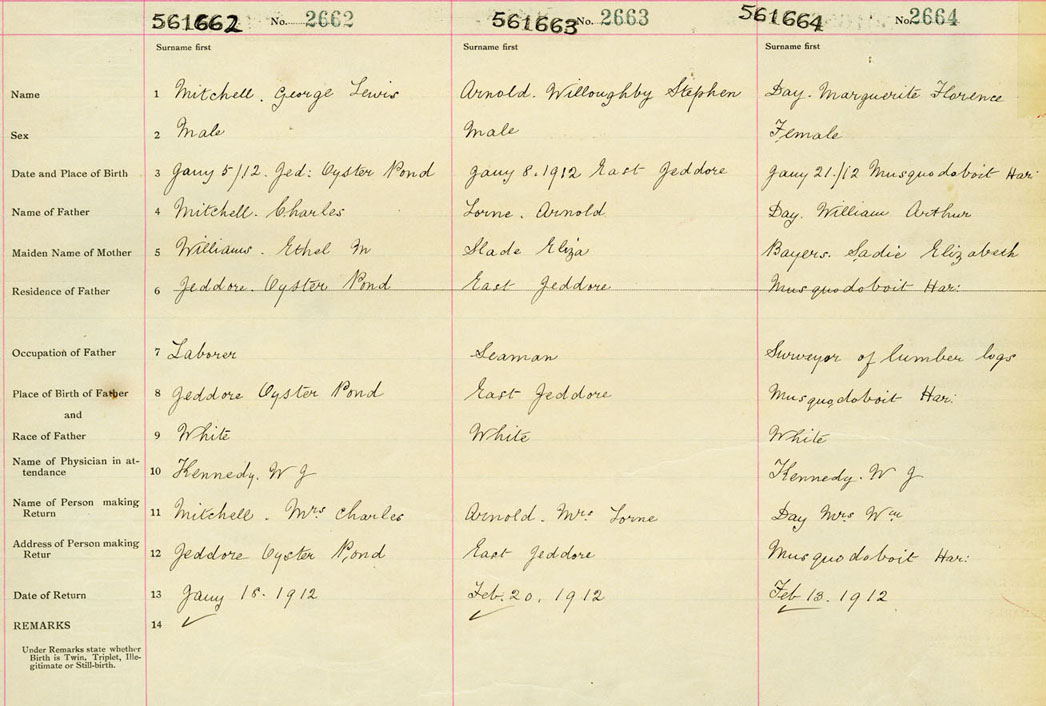 561662 No. 2662 561663 No. 2663 561664 No. 2664
Surname first Surname first Surname first
Name 1 Mitchell. George Lewis Arnold. Willoughby Stephen Day. Marguerite Florence
Sex 2 Male Male Female
Date and Place of Birth 3 Jany 5/12. Jed: Oyster Pond Jany 8. 1912 East Jeddore Jany 21/12 Musquodoboit Har:
Name of Father 4 Mitchell. Charles Lorne. Arnold Day. William Arthur
Maiden Name of Mother 5 Williams. Ethel M Slade Eliza Bayers. Sadie Elizabeth
Residence of Father 6 Jeddore. Oyster Pond East Jeddore Musquodoboit Har:
Occupation of Father 7 Laborer Seaman Surveyor of lumber logs
Place of Birth of Father 8 Jeddore Oyster Pond East Jeddore Musquodoboit Har:
and
Race of Father 9 White White White
Name of Physician in at-
tendance 10 Kennedy. W J Kennedy. W J
Name of Person making
Return 11 Mitchell. Mrs Charles Arnold. Mrs Lorne Day Mrs Wm
Address of Person making
Retur 12 Jeddore Oyster Pond East Jeddore Musquodoboit Har:
Date of Return 13 Jany 18. 1912 Feb. 20. 1912 Feb 13. 1912
REMARKS 14
Under Remarks state whether
Birth is Twin, Triplet, Ille-
gitimate or Still-birth.